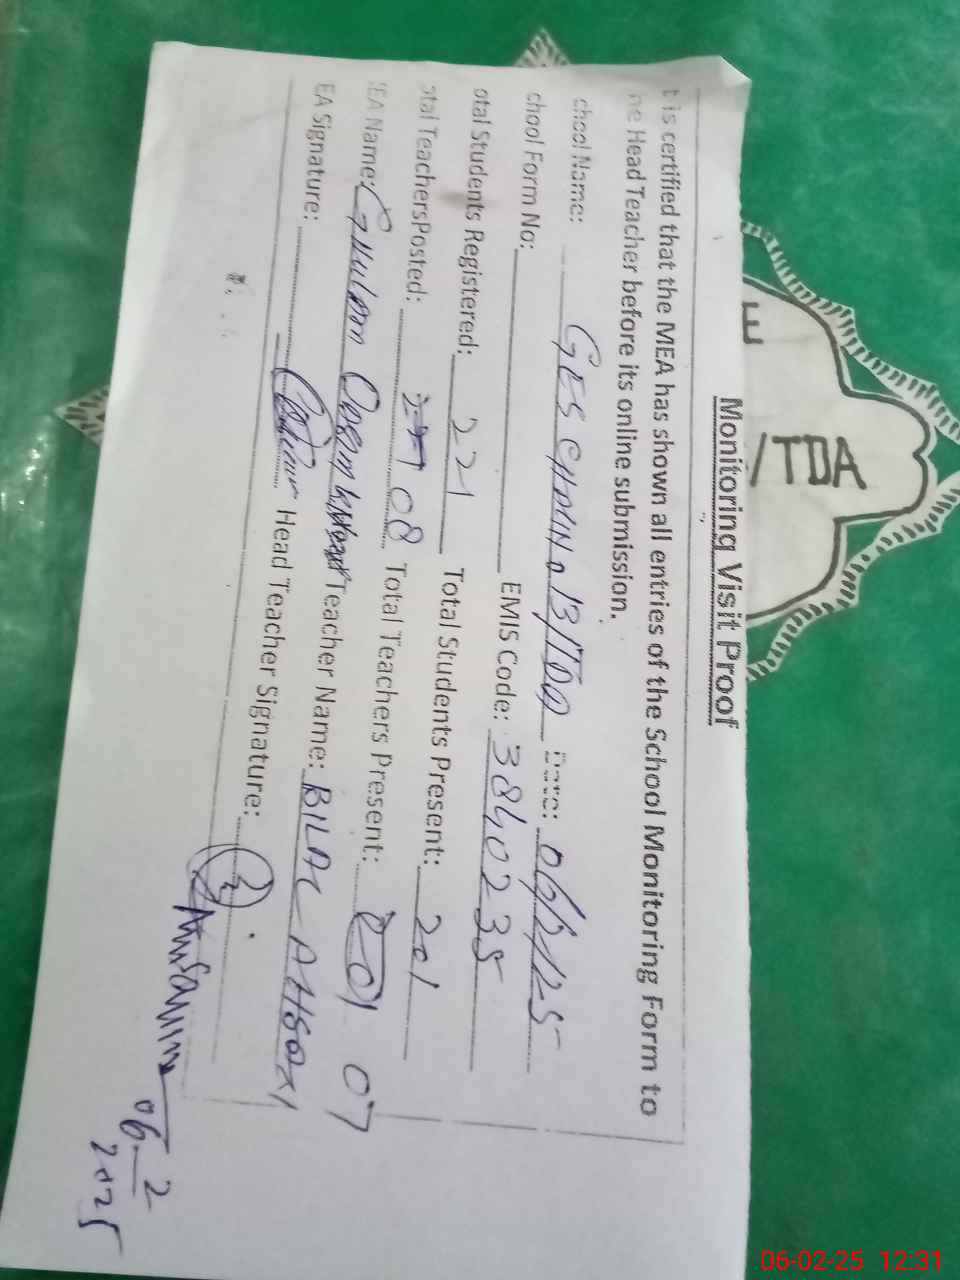 E
/TDA
Monitoring Visit Proof
t is certified that the MEA has shown all entries of the School Monitoring Form to
he Head Teacher before its online submission.
chool Name: GES CHAK No 13/TDA Date: 06/2/25
chool Form No: EMIS Code: 3840235
otal Students Registered: 221 Total Students Present: 201
otal TeachersPosted: 08 Total Teachers Present: 07
EA Name: Ghulam Teacher Name: BILAL AHSAN
EA Signature: Head Teacher Signature:
06 2
2025
06-02-25 12:31